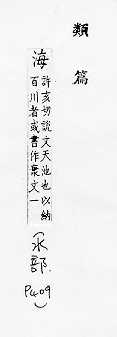 類篇
海
許亥切說文天池也以納
百川者或書作𣴴文一
(水部 P409)